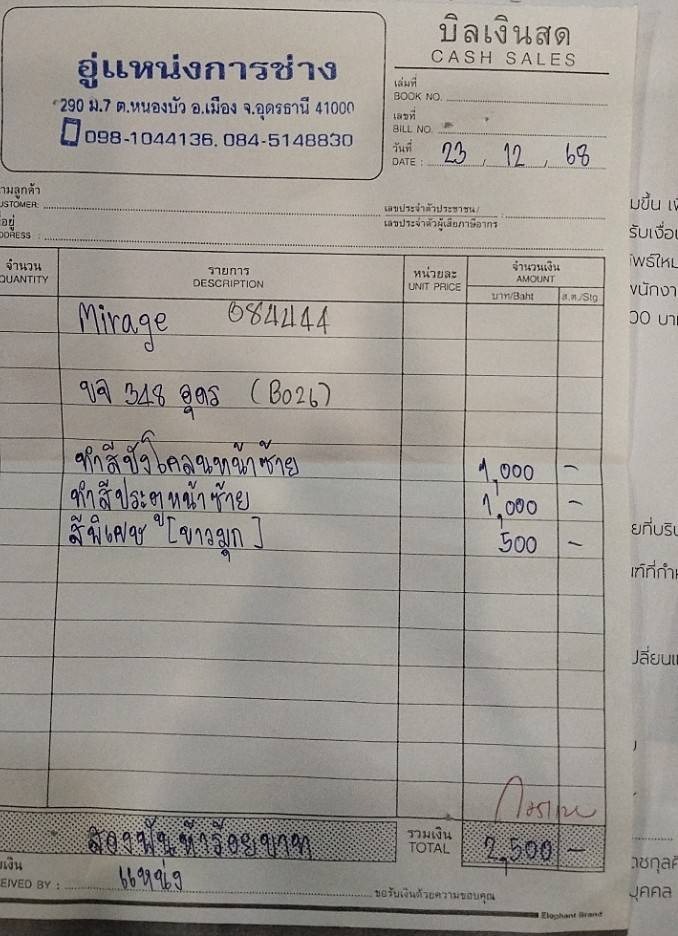 บิลเงินสด
CASH SALES
อู่แหน่งการช่าง
290 ม.7 ต.หนองบัว อ.เมือง จ.อุดรธานี 41000
098-1044136, 084-5148830
เล่มที่
BOOK NO.
เลขที่
BILL NO.
วันที่
DATE : 23 , 12 , 68
ามลูกค้า
USTOMER:
เลขประจำตัวประชาชน/
เลขประจำตัวผู้เสียภาษีอากร
อยู่
DDRESS :
จำนวน รายการ หน่วยละ จำนวนเงิน
QUANTITY DESCRIPTION UNIT PRICE AMOUNT
บาท/Baht ส.ต./Stg
Mirage 084444
ขจ 348 อุดร (B026)
ทำสีบังโคลนหน้าซ้าย 1,000 -
ทำสีประตูหน้าซ้าย 1,000 -
สีพิเศษ [ขาวมุก] 500 -
สองพันห้าร้อยบาท
รวมเงิน
TOTAL 2,500 -
EIVED BY : แหน่ง
ขอรับเงินด้วยความขอบคุณ
Elephant Brand
มขึ้น
รับเงื่อ
พนักงา
00 บา
ยที่บริ
ฑ์ที่กำ
ปลี่ยนแ
บุคคล